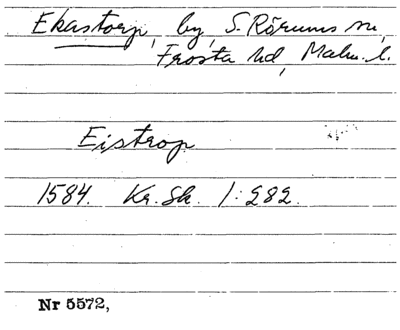 Ekastorp, by, S. Rörums sn,
Frosta hd, Malm. l.
Eistrop
1584. Kr. Sk. 1:282.
Nr 5572,